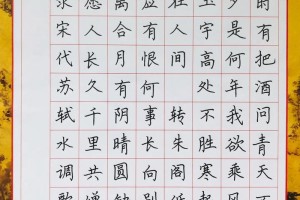 时有把酒问青天不
夕是何年我欲乘风
玉宇高处不胜寒起
在人间 转朱阁低
应有恨何事长向别
离合月有阴晴圆缺
愿人长久千里共婵
录宋代苏轼水调歌